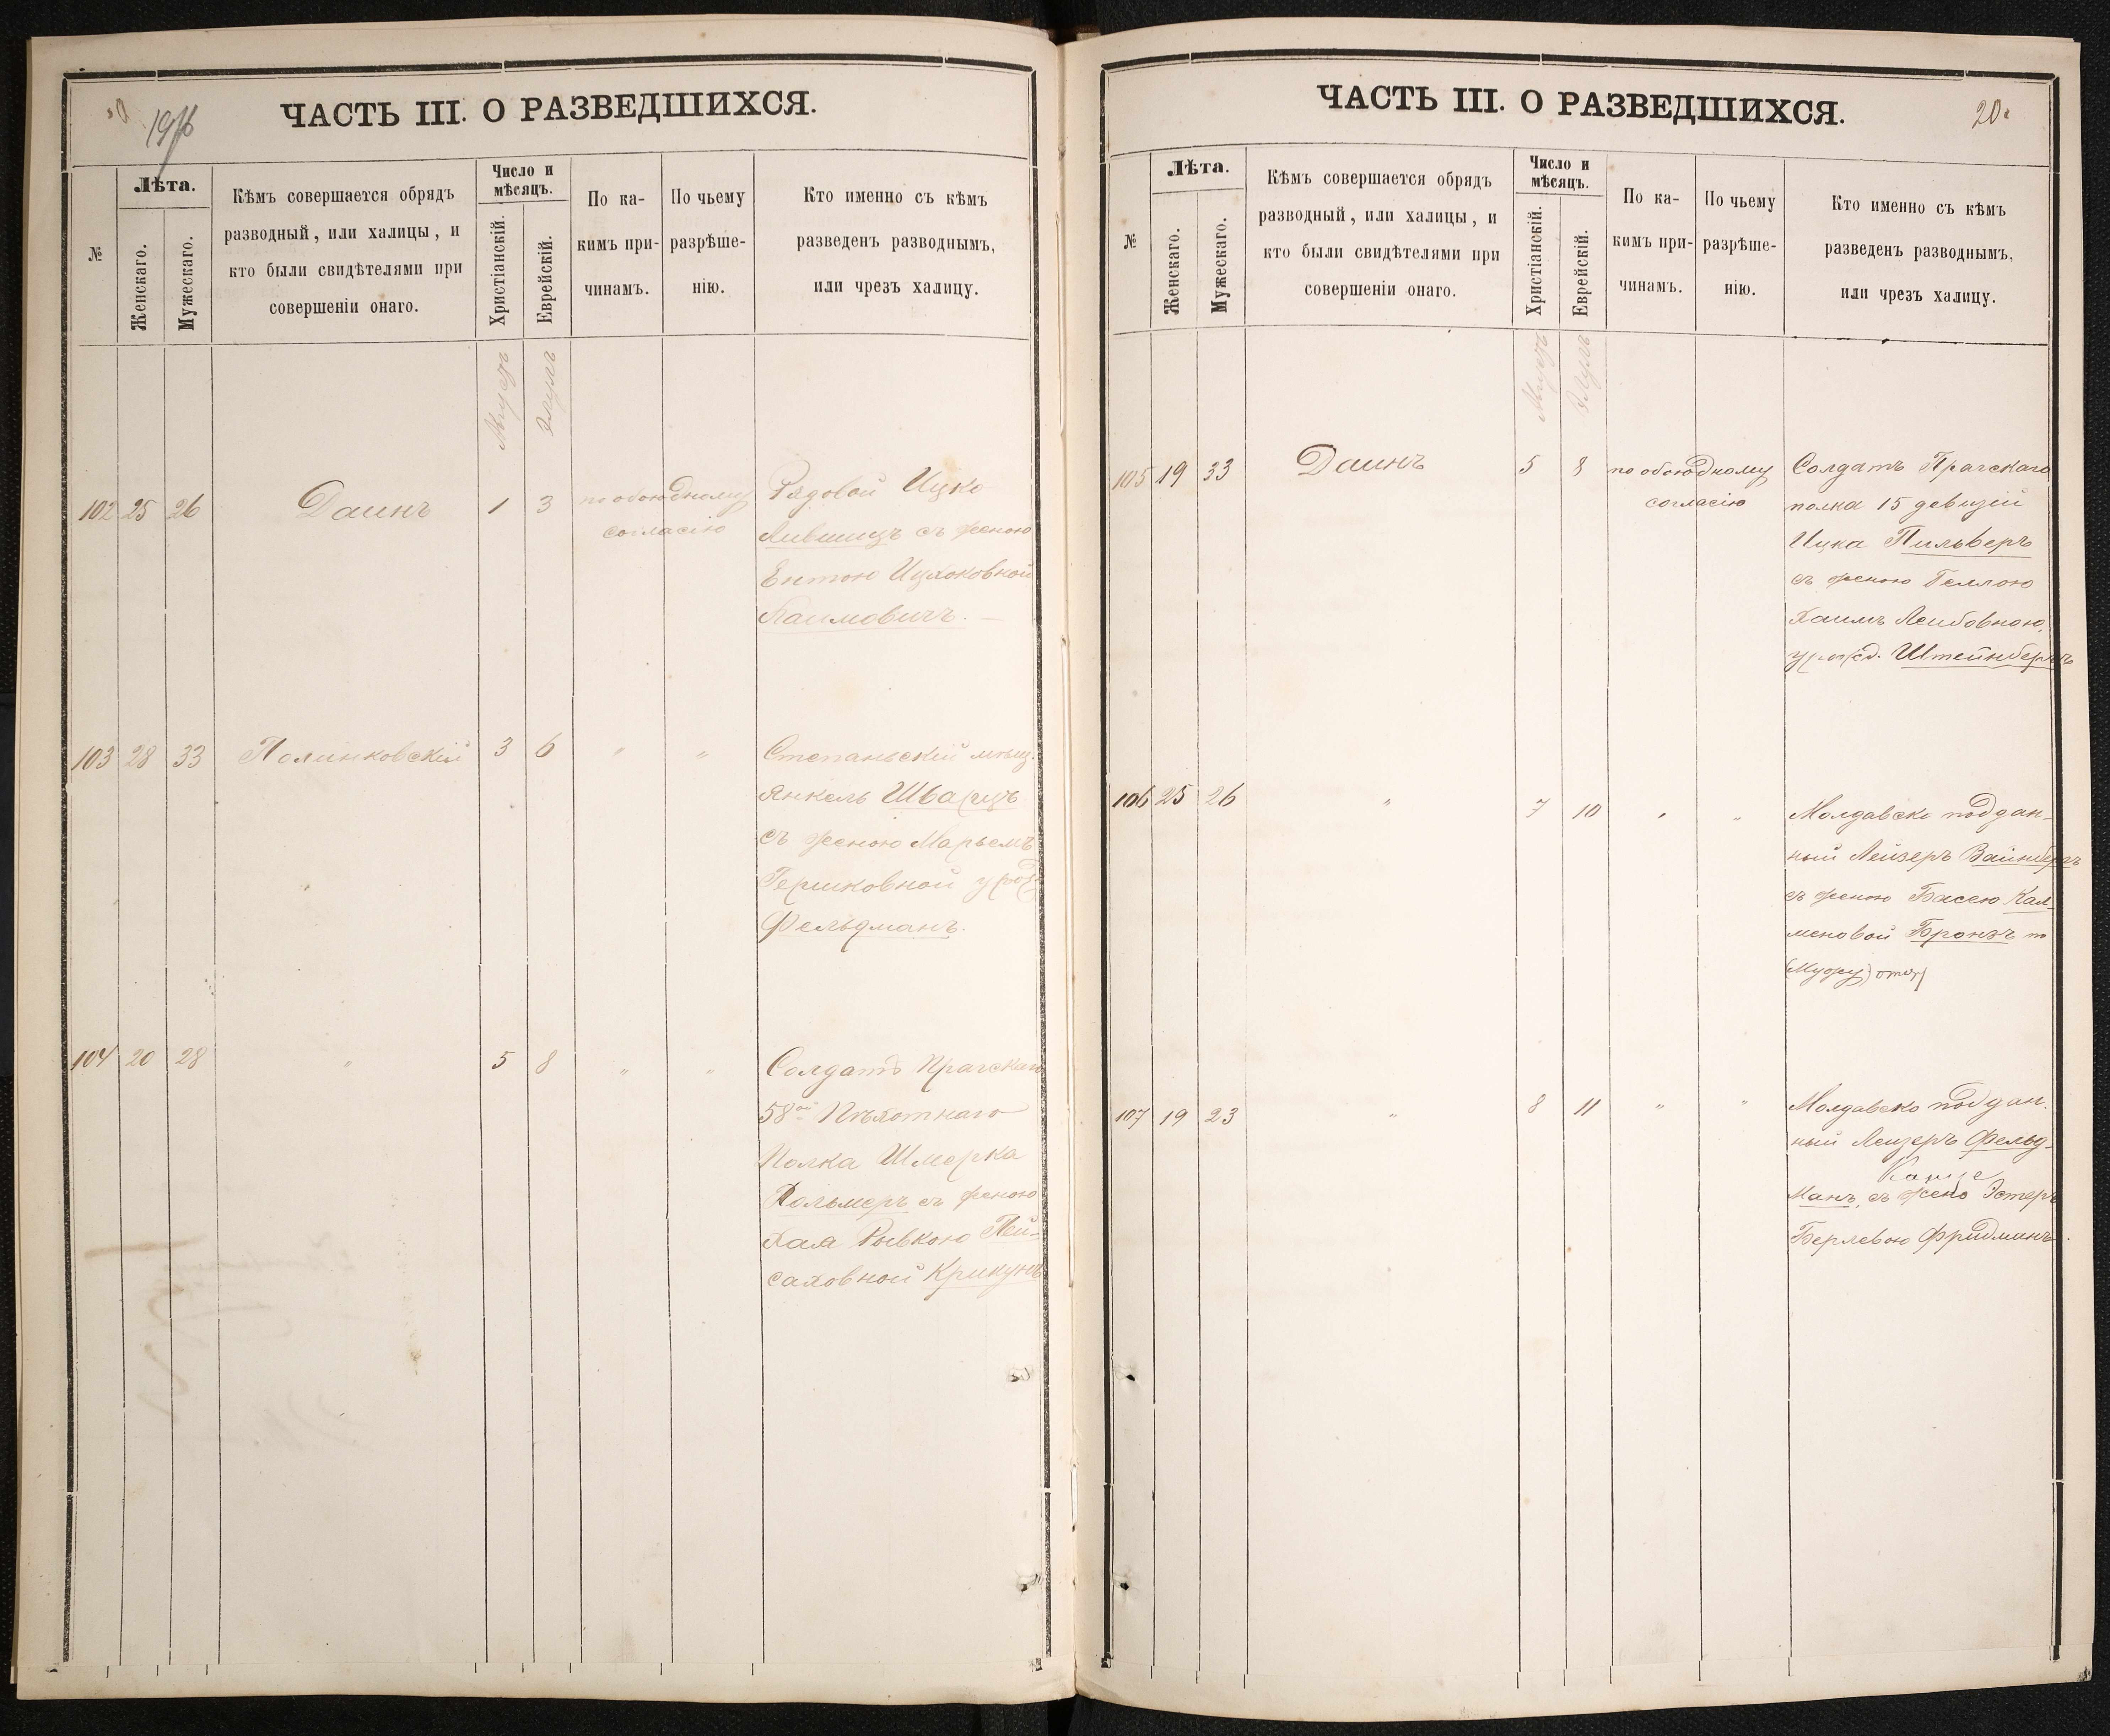 19
ЧАСТЬ III. О РАЗВЕДШИХСЯ.
№
Лѣта.
Женскаго.
Мужескаго.
Кѣмъ совершается обрядъ
разводный, или халицы, и
кто были свидѣтелями при
совершеніи онаго.
Число и
мѣсяцъ.
Христіанскій.
Еврейскій.
По ка-
кимъ при-
чинамъ.
По чьему
разрѣше-
нію.
Кто именно съ кѣмъ
разведенъ разводнымъ,
или чрезъ халицу.
Элулъ
102 25 26 Даинъ 1 3 по обоюдному
согласію
Рядовой Ицко
Лившицъ съ женою
Ентою Ицхоковной
Хаимовичъ. —
103 28 33 Полинковскій 3 6 " "
Степаньскій мѣщ.
Янкель Шварцъ
съ женою Марьемъ
Гершковной урож
Фельдманъ.
104 20 28 " 5 8 " "
Солдатъ Прагскаго
58ой Пѣхотнаго
Полка Шмерка
Хольмеръ съ женою
Хая Рывкою Пей-
саховной Крикунъ
ЧАСТЬ III. О РАЗВЕДШИХСЯ.
20.
№
Лѣта.
Женскаго.
Мужескаго.
Кѣмъ совершается обрядъ
разводный, или халицы, и
кто были свидѣтелями при
совершеніи онаго.
Число и
мѣсяцъ.
Христіанскій.
Еврейскій.
По ка-
кимъ при-
чинамъ.
По чьему
разрѣше-
нію.
Кто именно съ кѣмъ
разведенъ разводнымъ,
или чрезъ халицу.
Элулъ
105 19 33 Даинъ 5 8 по обоюдному
согласію
Солдатъ Прагскаго
полка 15 девизіи
Ицка Пильверъ
съ женою Геллою
Хаимъ Лейбовною,
урожд. Штейнбергъ
106 25 26 " 7 10 " "
Молдавско поддан-
ный Лейзеръ Вайнбергъ
съ женою Басею Кал-
меновой Бронзъ по
(Мужу)
107 19 23 " 8 11 " "
Молдавско поддан.
ный Лейзеръ Фельд-
манъ, съ жено Эстеръ
Берлевою Фридманъ.